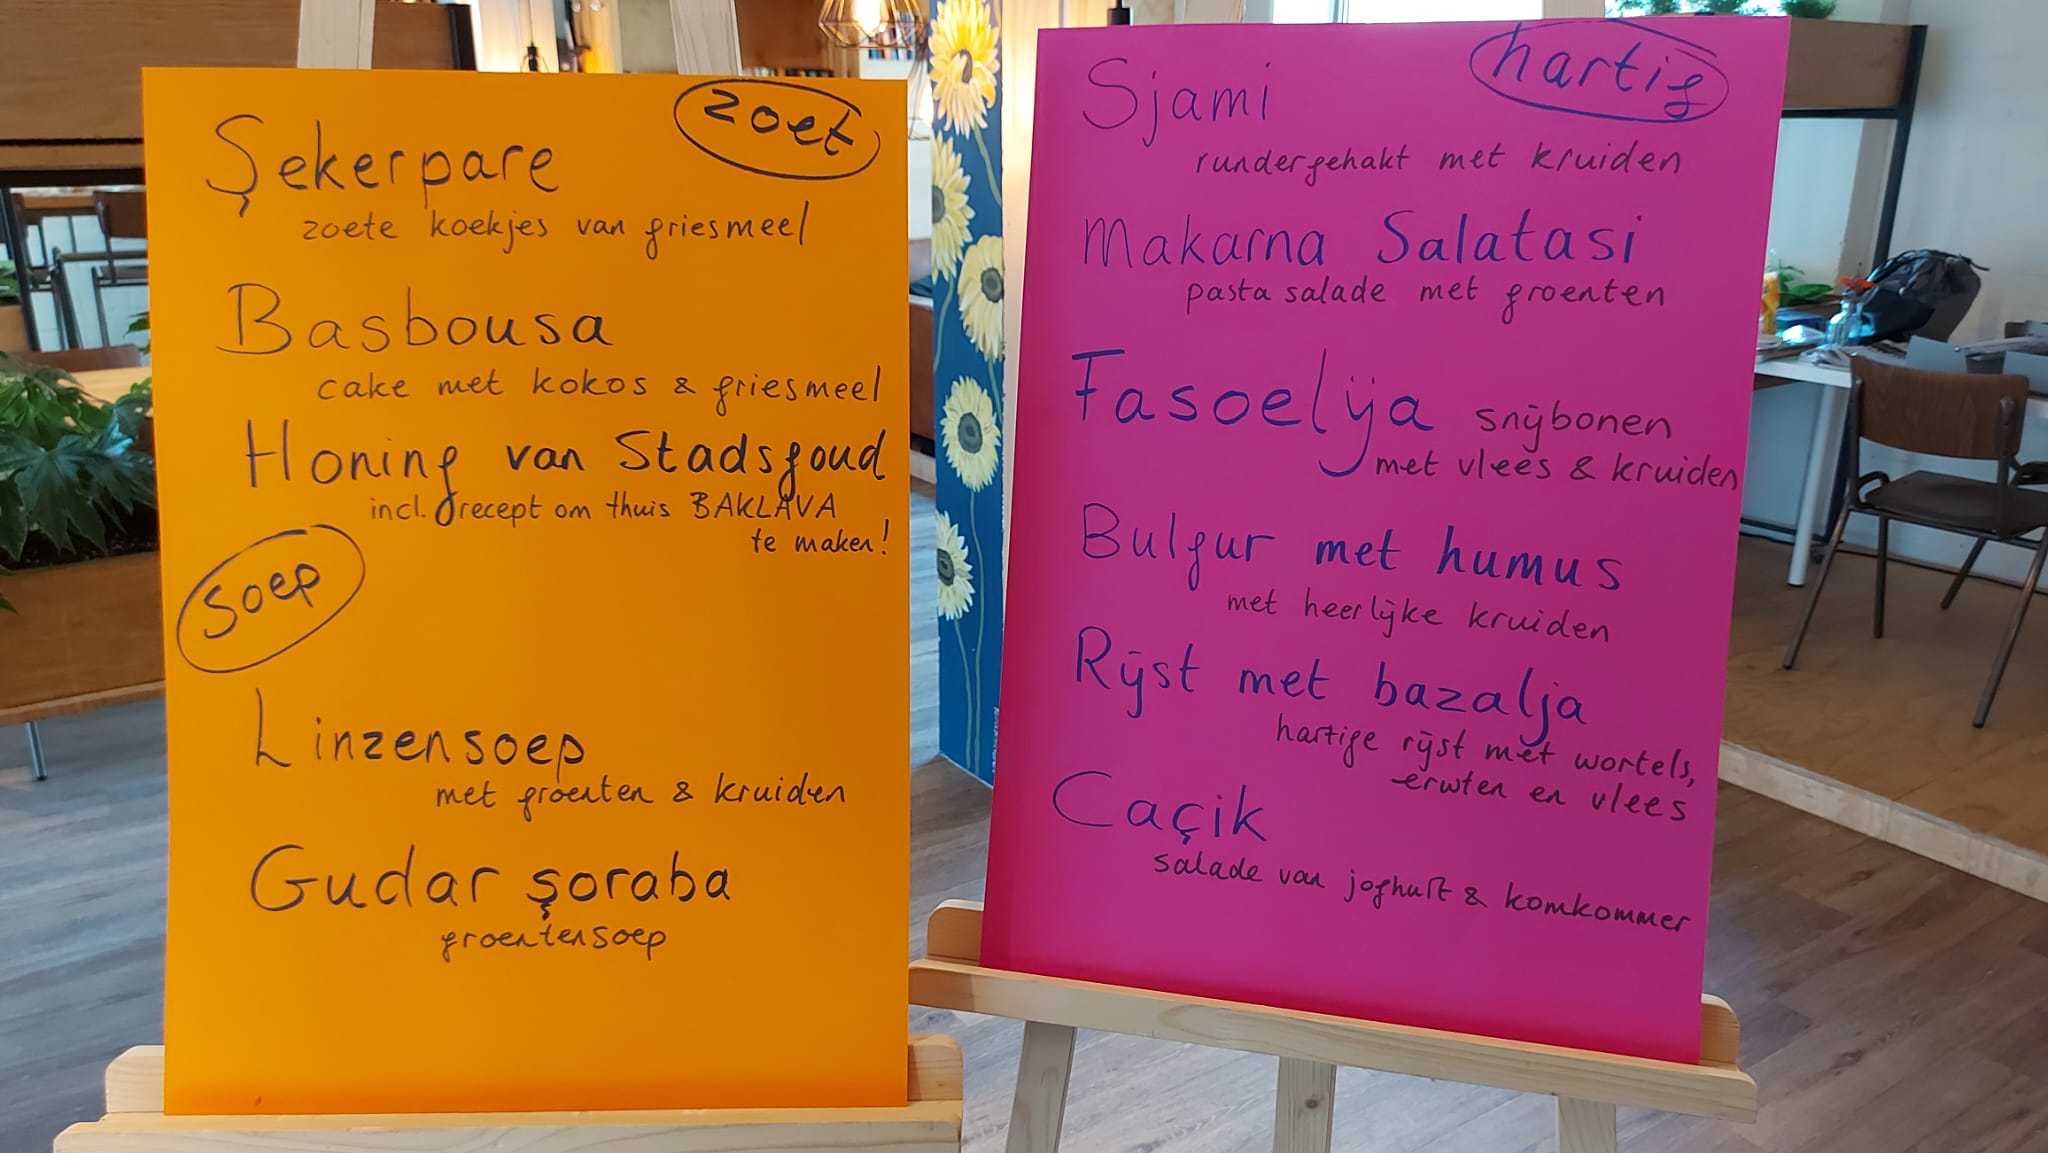 zoet
Şekerpare
zoete koekjes van griesmeel
Basbousa
cake met kokos & griesmeel
Honing van Stadsgoud
incl. recept om thuis BAKLAVA
te maken!
soep
Linzensoep
met groenten & kruiden
Gudar şoraba
groentensoep
hartig
Sjami
rundergehakt met kruiden
Makarna Salatasi
pasta salade met groenten
Fasoelija snijbonen
met vlees & kruiden
Bulgur met humus
met heerlijke kruiden
Rijst met bazalja
hartige rijst met wortels,
erwten en vlees
Caçik
salade van joghurt & komkommer